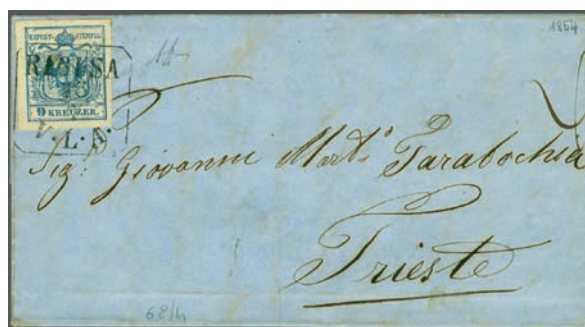 1854
K.K.POST-STEMPEL
RAGUSA
9 KREUZER.
V.L.A.
Sigr Giovanni Marto Tarabochia
Trieste
68/4